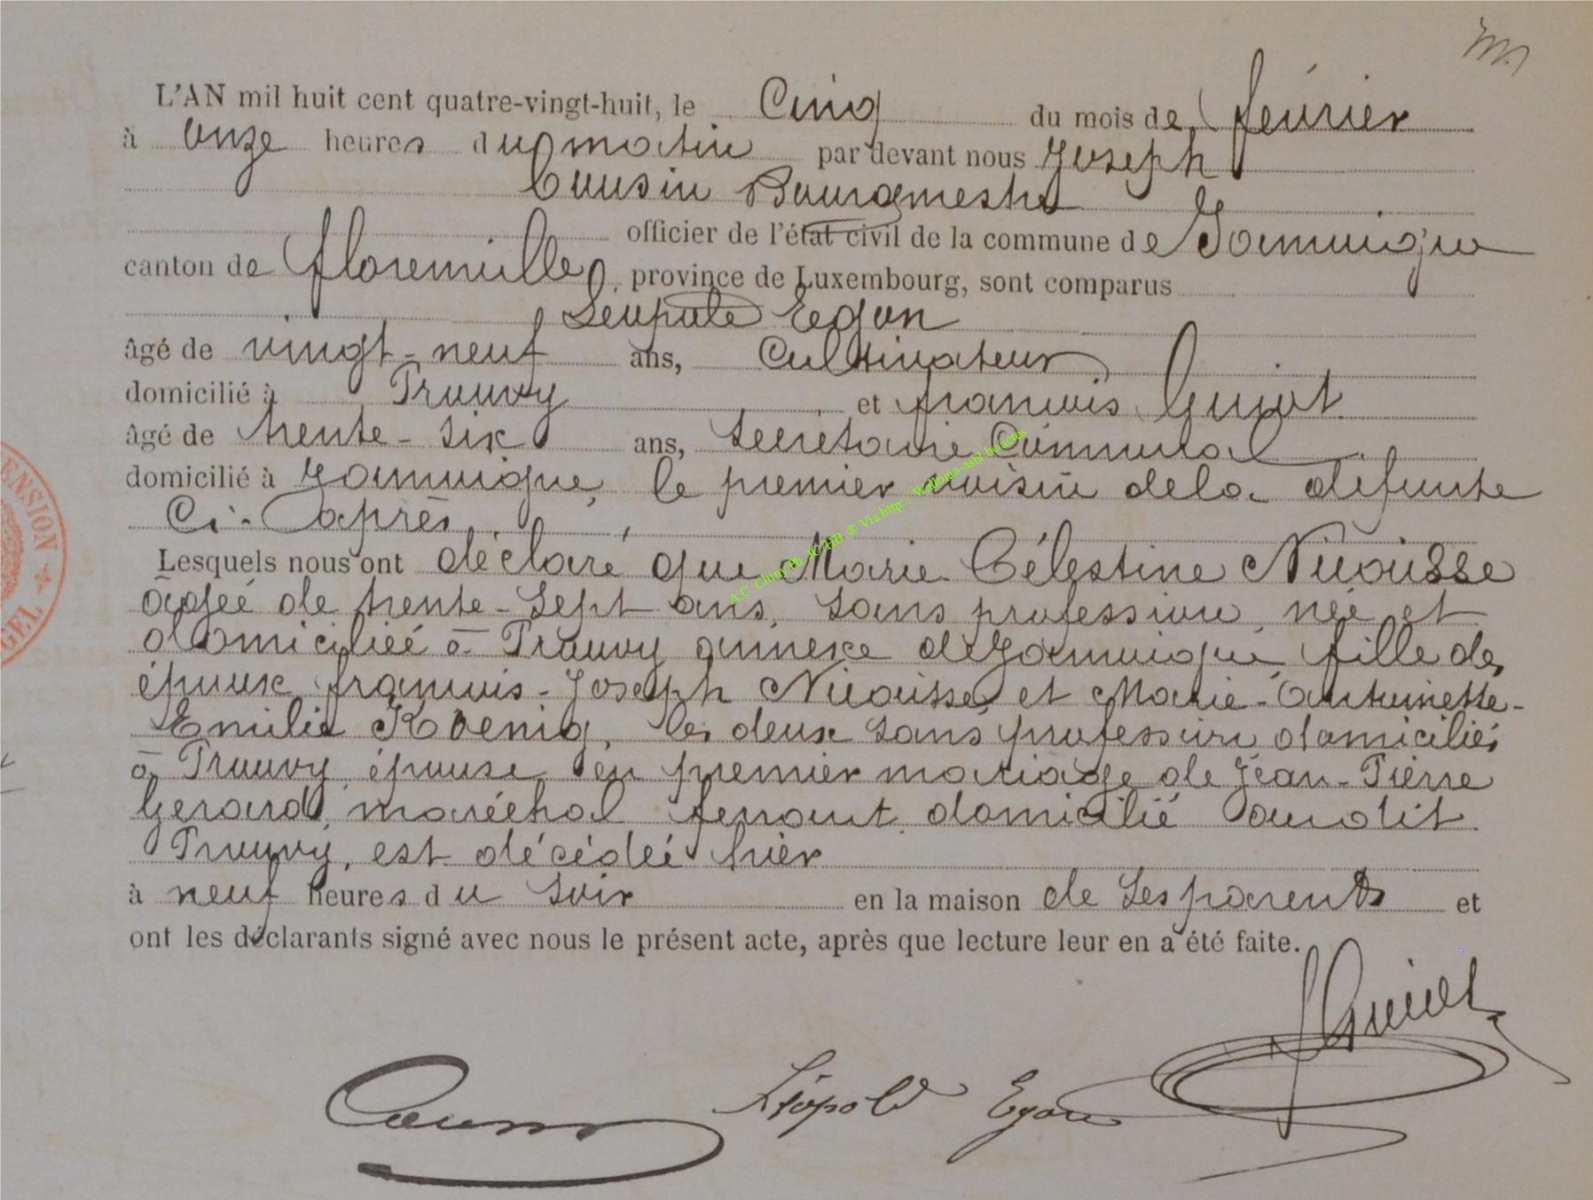 L'AN mil huit cent quatre-vingt-huit, le Cinq du mois de février
à onze heures du matin par devant nous Joseph
Cousin Bourgmestre
officier de l'état civil de la commune de Jammoigne
canton de florenville, province de Luxembourg, sont comparus
Léopold Egon
âgé de vingt-neuf ans, Cultivateur
domicilié à Prouvy et françois Guiot
âgé de trente-six ans, Secrétaire Communal
domicilié à Jammoigne, le premier voisin de la défunte
Ci-après,
Lesquels nous ont déclaré que Marie Célestine Nicaisse
âgée de trente-sept ans, sans profession, née et
domiciliée à Prouvy annexe de Jammoigne fille des
époux françois-Joseph Nicaisse et Marie-Antoinette-
Emilie Koenig, les deux sans profession domiciliés
à Prouvy, épouse en premier mariage de Jean-Pierre
Gerard, maréchal ferrant domicilié audit
Prouvy, est décédée hier
à neuf heures du soir en la maison de ses parents et
ont les déclarants signé avec nous le présent acte, après que lecture leur en a été faite.
JGuiot
Cousin Léopold Egon